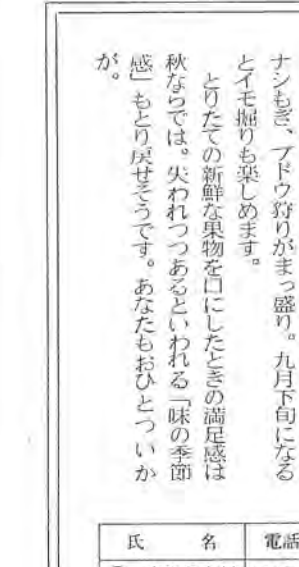 ナシもぎ、ブドウ狩りがまっ盛り。九月下旬になる
とイモ掘りも楽しめます。
とりたての新鮮な果物を口にしたときの満足感は
秋ならでは。失われつつあるといわれる「味の季節
感」もとり戻せそうです。あなたもおひとついか
が。
氏　名
電話